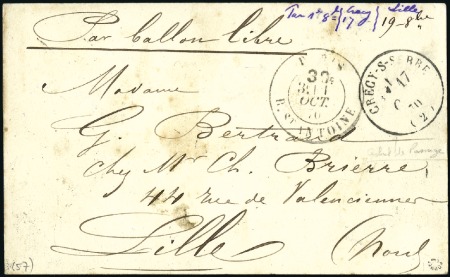 Par ballon libre
Lille
17
19-8bre
PARIS
R. ST ANTOINE
OCT.
CRÉCY-S-SERRE
17
(2)
Madame
G. Bertrand
chez Mr Ch. Brierre
44 rue de Valenciennes
Lille (Nord)
(57)